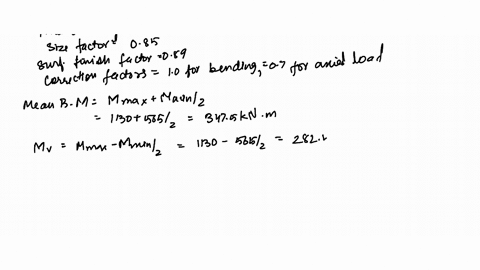 size factor 0.85
surf. finish factor = 0.89
correction factors = 1.0 for bending, = 0.7 for axial load
Mean B.M = Mmax + Mmin/2
= 1130 + 565/2 = 847.5 kN.m
Mv = Mmax - Mmin/2 = 1130 - 565/2 = 282.